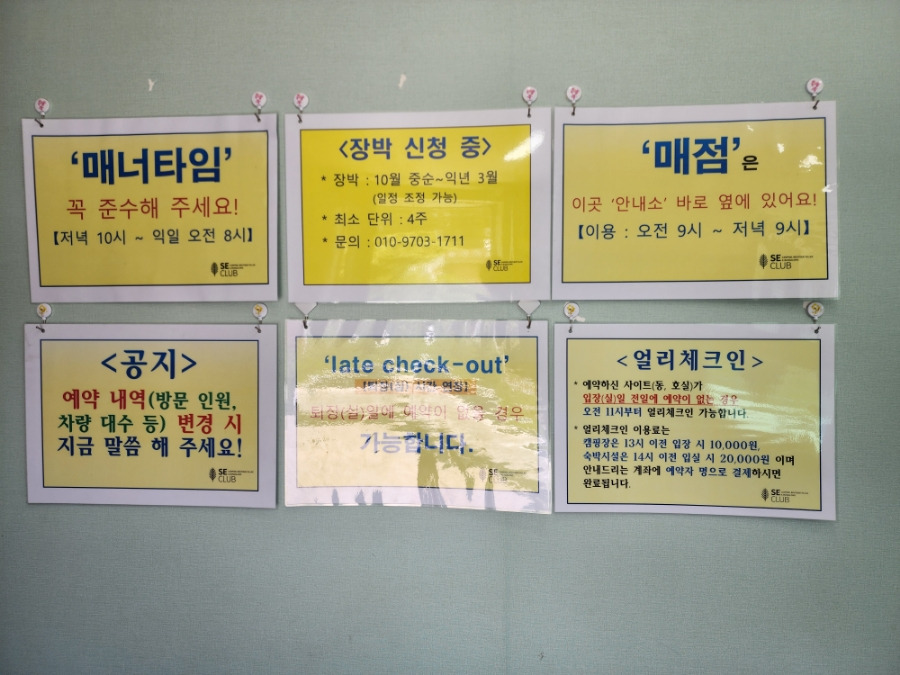 '매너타임'
꼭 준수해 주세요!
【저녁 10시 ~ 익일 오전 8시】
SE
CLUB
<장박 신청 중>
* 장박 : 10월 중순~익년 3월
(일정 조정 가능)
* 최소 단위 : 4주
* 문의 : 010-9703-1711
SE
CLUB
'매점'은
이곳 '안내소' 바로 옆에 있어요!
【이용 : 오전 9시 ~ 저녁 9시】
SE
CLUB
<공지>
예약 내역(방문 인원,
차량 대수 등) 변경 시
지금 말씀 해 주세요!
SE
CLUB
'late check-out'
【퇴장(실) 시간 연장】
퇴장(실)일에 예약이 없을 경우
가능합니다.
SE
CLUB
<얼리체크인>
* 예약하신 사이트(동, 호실)가
입장(실)일 전일에 예약이 없는 경우
오전 11시부터 얼리체크인 가능합니다.
* 얼리체크인 이용료는
캠핑장은 13시 이전 입장 시 10,000원,
숙박시설은 14시 이전 입실 시 20,000원 이며
안내드리는 계좌에 예약자 명으로 결제하시면
완료됩니다.
SE
CLUB